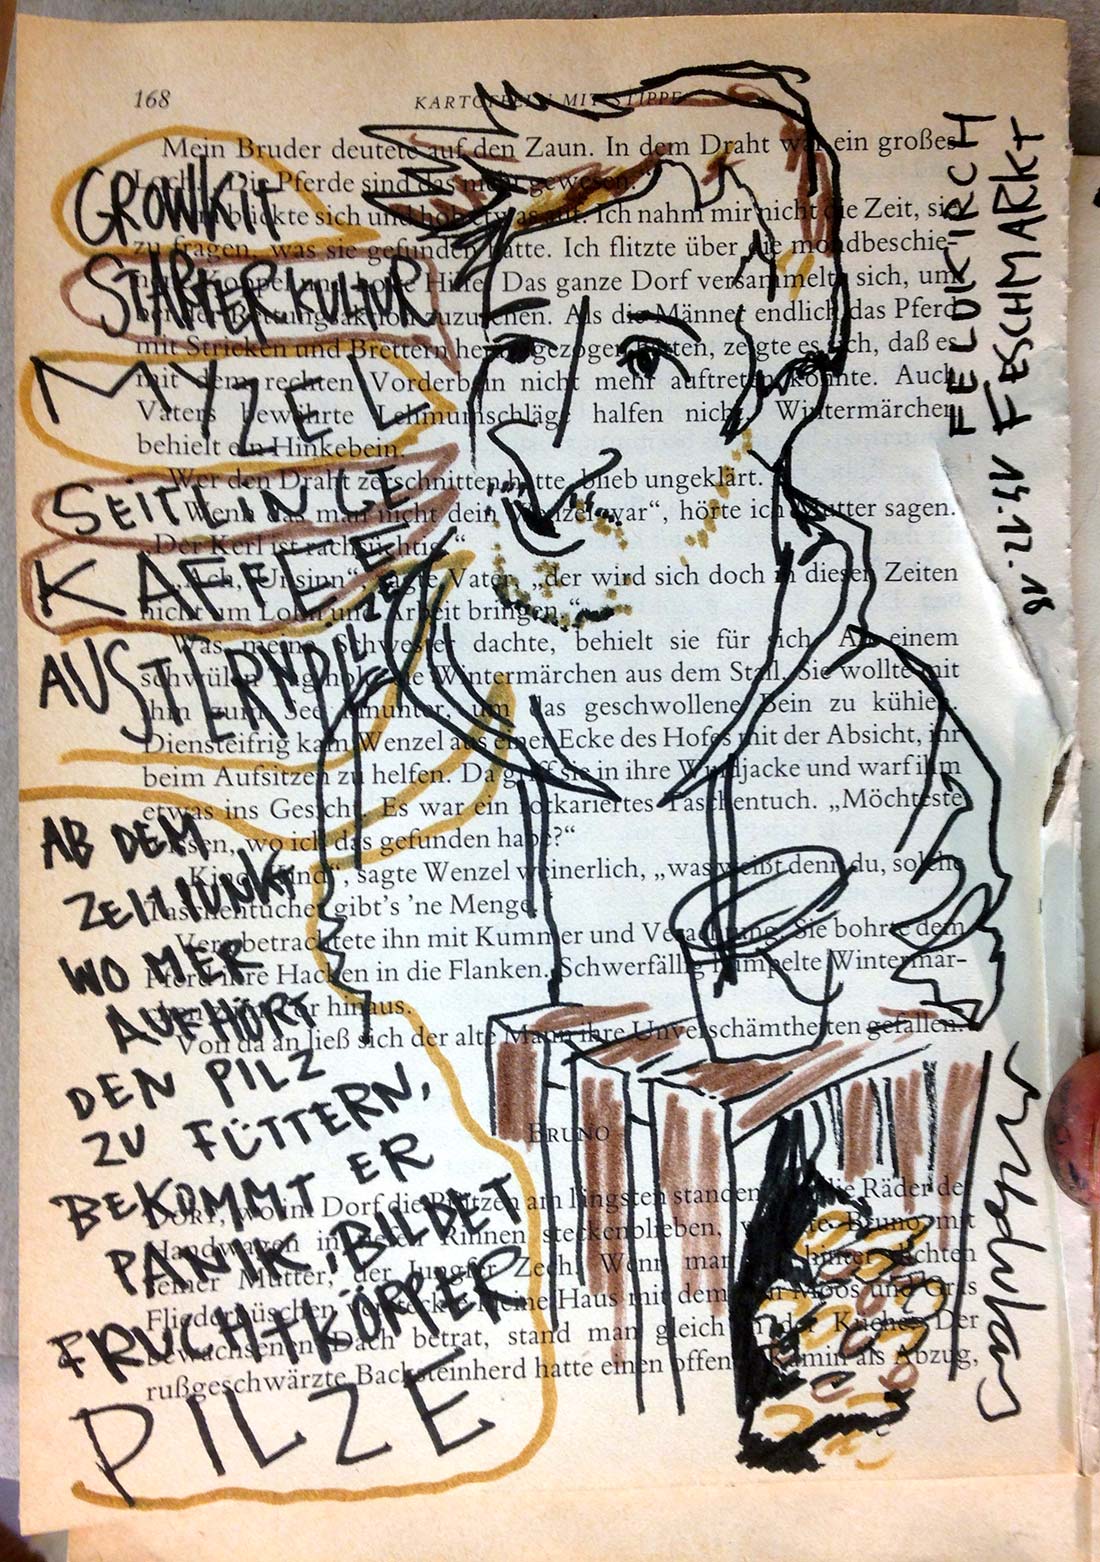 168
KARTOFFELN MIT STIPPE
Mein Bruder deutete auf den Zaun. In dem Draht war ein großes
Loch. Die Pferde sind das nicht gewesen."
bückte sich und hob etwas auf. Ich nahm mir nicht die Zeit, sie
zu fragen, was sie gefunden hatte. Ich flitzte über die mondbeschie-
Koppel und holte Hilfe. Das ganze Dorf versammelte sich, um
Rettungsaktion zuzusehen. Als die Männer endlich das Pferd
mit Stricken und Brettern herausgezogen hatten, zeigte es sich, daß es
mit dem rechten Vorderbein nicht mehr auftreten konnte. Auch
Vaters bewährte Lehmumschläge halfen nicht. Wintermärchen
behielt ein Hinkebein.
Wer den Draht zerschnitten hatte, blieb ungeklärt.
„Wenn das man nicht dein Wenzel war“, hörte ich Mutter sagen.
„Der Kerl ist rachsüchtig.“
„Ach, Unsinn“, sagte Vater, „der wird sich doch in diesen Zeiten
nicht um Lohn und Arbeit bringen.“
Was meine Schwester dachte, behielt sie für sich. An einem
schwülen Tag holte sie Wintermärchen aus dem Stall. Sie wollte mit
ihm zum See hinunter, um das geschwollene Bein zu kühlen.
Diensteifrig kam Wenzel aus einer Ecke des Hofes mit der Absicht, ihr
beim Aufsitzen zu helfen. Da griff sie in ihre Windjacke und warf ihm
etwas ins Gesicht. Es war ein rotkariertes Taschentuch. „Möchteste
wissen, wo ich das gefunden habe?“
„Kind, Kind“, sagte Wenzel weinerlich, „was weißt denn du, solche
Taschentücher gibt's 'ne Menge.“
Vera betrachtete ihn mit Kummer und Verachtung. Sie bohrte dem
Pferd ihre Hacken in die Flanken. Schwerfällig humpelte Wintermär-
hinaus.
Von da an ließ sich der alte Mann ihre Unverschämtheiten gefallen.
BRUNO
Dorf, wo in Dorf die Pfützen am längsten standen die Räder der
Handwagen in Rinnen steckenblieben, wohnte Bruno mit
seiner Mutter, der Jungfer Zech. Wenn man hinter dichten
Fliederbüschen versteckte kleine Haus mit dem von Moos und Gras
bewachsenen Dach betrat, stand man gleich in der Küche. Der
rußgeschwärzte Backsteinherd hatte einen offenen Kamin als Abzug,
GROWKIT
STARTERKULTUR
MYZEL
SEITLINGE
KAFFEE
AUSTERNPILZE
AB DEM
ZEITPUNKT
WO MER
AUFHÖRT
DEN PILZ
ZU FÜTTERN,
BEKOMMT ER
PANIK, BILDET
FRUCHTKÖRPER
PILZE
FELDKIRCH
15.12.18 FESCHMARKT